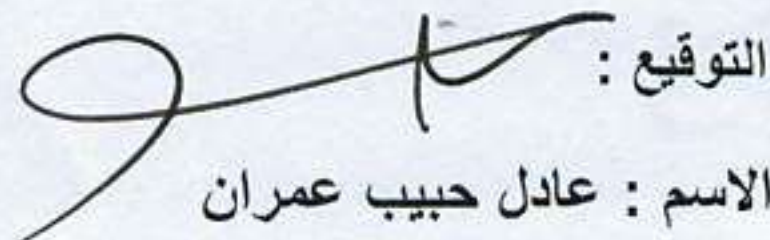 التوقيع :
الاسم : عادل حبيب عمران